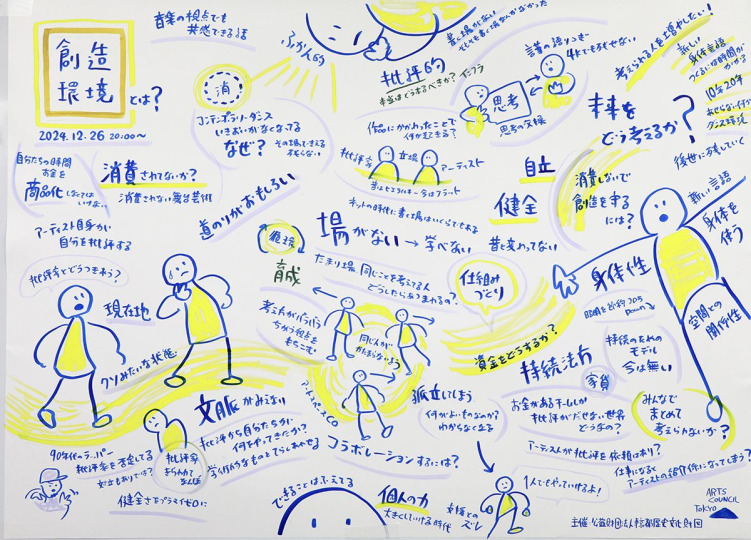 創造
環境
とは?
2024.12.26 20:00〜
音楽の視点でも
共感できる話
ふかん的
消
コンテンポラリーダンス
いきおいがなくなってる
なぜ?
自分たちの時間
お金を
商品化
消費されてないか?
消費されない舞台芸術
アーティスト自身が
自分を批評する
批評家とどうつきあう?
現在地
クソみたいな状態
道のりがおもしろい
批評的
本当はどうあるべきか?
作品にかかわったことで
何が起きる?
批評家
立場
アーティスト
思考
思考の交換
言葉の語りつぎ
自立
健全
ネットの時代に書く場はいくらでもある
場がない→学べない
昔と変わってない
循環
育成
たまり場 同じことを考えてる人
どうしたらあつまれるの?
仕組み
づくり
考え方がバラバラ
ちがう視点を
もちこむ
同じ人が
かたまらないよう
資金をどうするか?
持続法方
家賃
考えられる人を増やしたい!
新しい
身体言語
10年20年
未来を
どう考えるか?
後世に残していく
消費しないで
創造を守る
には?
新しい言語
身体を
使う
身体性
空間との
関係性
持続のための
モデル
今は無い
文脈がみえない
批評から自分たちが
何をやってきたか?
90年代のラッパー
批評家を否定してる
批評家
きらわれて
なんぼ
健全さをプライオに
コラボレーションするには?
孤立してしまう
何がよいものなのか?
わからなくなる
お金があるチームしか
批評がだせない世界
どうなの?
みんなで
まとめて
考えられないか?
アーティストが批評を依頼はあり?
仕事になると
アーティストの紹介作になってしまう?
できることはふえてる
個人の力
大きくしていける時代
支援との
ズレ
1人でもやっていけるよ!
ARTS
COUNCIL
TOKYO
主催 公益財団法人東京都歴史文化財団